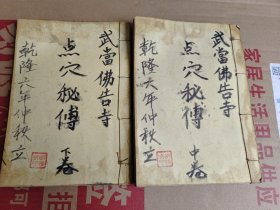 武當佛告寺
点穴秘傳
下卷
乾隆六年仲秋立
武當佛告寺
点穴秘傳
中卷
乾隆六年仲秋立
家居生活用品供